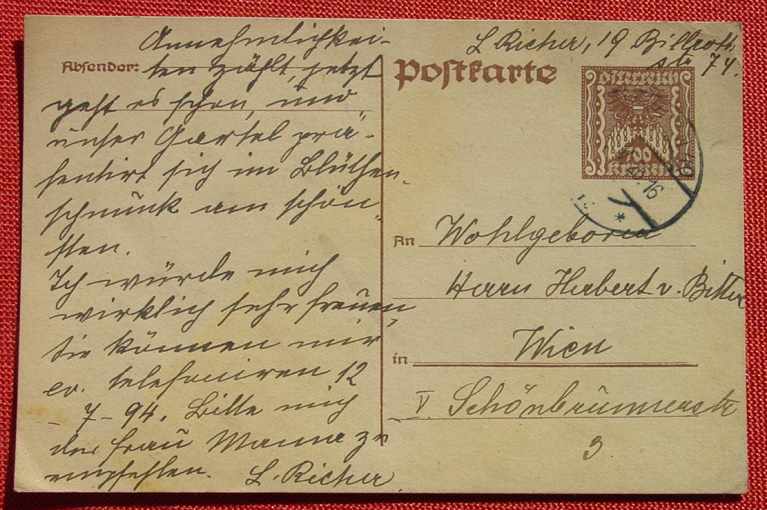 Annehmlichkei-
Absender: ten zählt, jetzt
geht es schon, und
unser Gartel prä-
sentirt sich im Blüthen-
schmuck am schön-
sten.
Ich würde mich
wirklich sehr freuen,
Sie können mir
ev. telefoniren 12
-7-94. Bitte mich
der Frau Mama zu
empfehlen. L. Richer
L Richer, 19 Billroth
str 74.
Postkarte
Österreich
700
Kronen
An Wohlgeboren
Herrn Herbert v. Bitter
in Wien
V. Schönbrunnerstr
3